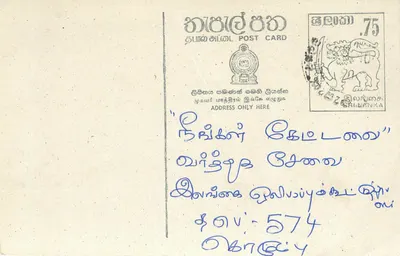 තැපැල් පත
ශ්‍රී ලංකා
.75
தபாலட்டை POST CARD
இலங்கை
ලිපිනය පමණක් මෙහි ලියන්න
முகவரி மாத்திரம் இங்கே எழுதுக
ADDRESS ONLY HERE
"நீங்கள் கேட்டவை"
வர்த்தக சேவை
இலங்கை ஒலிபரப்புக்கூட்டுத்தா
பம்
த பெ:- 574
கொழும்பு